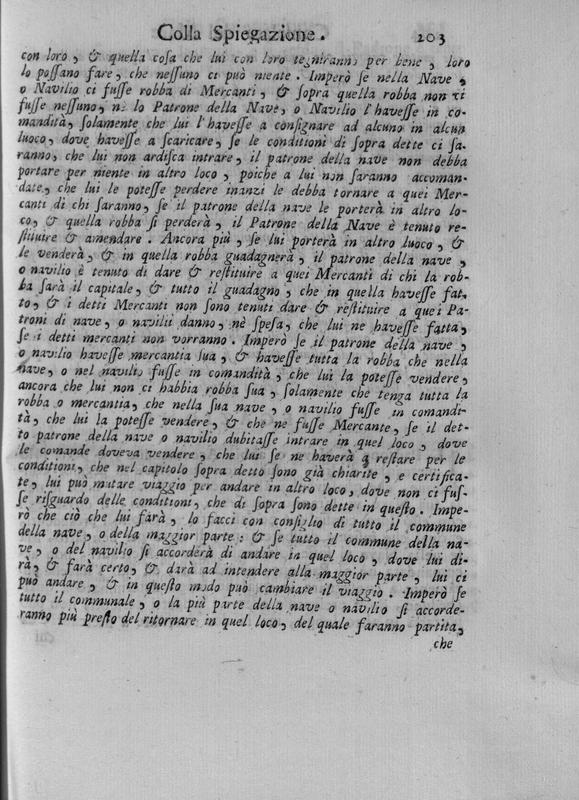 Colla Spiegazione. 203
con loro, & quella coſa che lui con loro tegniranno per bene, loro
lo poſſano fare, che neſſuno ci può niente. Imperò ſe nella Nave,
o Navilio ci fuſſe robba di Mercanti, & ſopra quella robba non ci
fuſſe neſſuno, nè lo Patrone della Nave, o Navilio l'haveſſe in co-
mandità, ſolamente che lui l'haveſſe a conſignare ad alcuno in alcun
luoco, dove haveſſe a ſcaricare, ſe le conditioni di ſopra dette ci ſa-
ranno, che lui non ardiſca intrare, il patrone della nave non debba
portare per niente in altro loco, poiche a lui non ſaranno accoman-
date, che lui le poteſſe perdere inanzi le debba tornare a quei Mer-
canti di chi ſaranno, ſe il patrone della nave le porterà in altro lo-
co, & quella robba ſi perderà, il Patrone della Nave è tenuto re-
ſtituire & amendare. Ancora più, ſe lui porterà in altro luoco, &
le venderà, & in quella robba guadagnerà, il patrone della nave,
o navilio è tenuto di dare & reſtituire a quei Mercanti di chi la rob-
ba ſarà il capitale, & tutto il guadagno, che in quella haveſſe fat-
to, & i detti Mercanti non ſono tenuti dare & reſtituire a quei Pa-
troni di nave, o navilii danno, nè ſpeſa, che lui ne haveſſe fatta,
ſe i detti mercanti non vorranno. Imperò ſe il patrone della nave,
o navilio haveſſe mercantia ſua, & haveſſe tutta la robba che nella
nave, o nel navilio fuſſe in comandità, che lui la poteſſe vendere,
ancora che lui non ci habbia robba ſua, ſolamente che tenga tutta la
robba o mercantia, che nella ſua nave, o navilio fuſſe in comandi-
tà, che lui la poteſſe vendere, & che ne fuſſe Mercante, ſe il det-
to patrone della nave o navilio dubitaſſe intrare in quel loco, dove
le comande doveva vendere, che lui ſe ne haverà a reſtare per le
conditioni, che nel capitolo ſopra detto ſono già chiarite, e certifica-
te, lui può mutare viaggio per andare in altro loco, dove non ci fuſ-
ſe riſguardo delle conditioni, che di ſopra ſono dette in queſto. Impe-
rò che ciò che lui farà, lo facci con conſiglio di tutto il commune
della nave, o della maggior parte: & ſe tutto il commune della na-
ve, o del navilio ſi accorderà di andare in quel loco, dove lui di-
rà, & farà certo, & darà ad intendere alla maggior parte, lui ci
può andare, & in queſto modo può cambiare il viaggio. Imperò ſe
tutto il communale, o la più parte della nave o navilio ſi accorde-
ranno più preſto del ritornare in quel loco, del quale faranno partita,
che